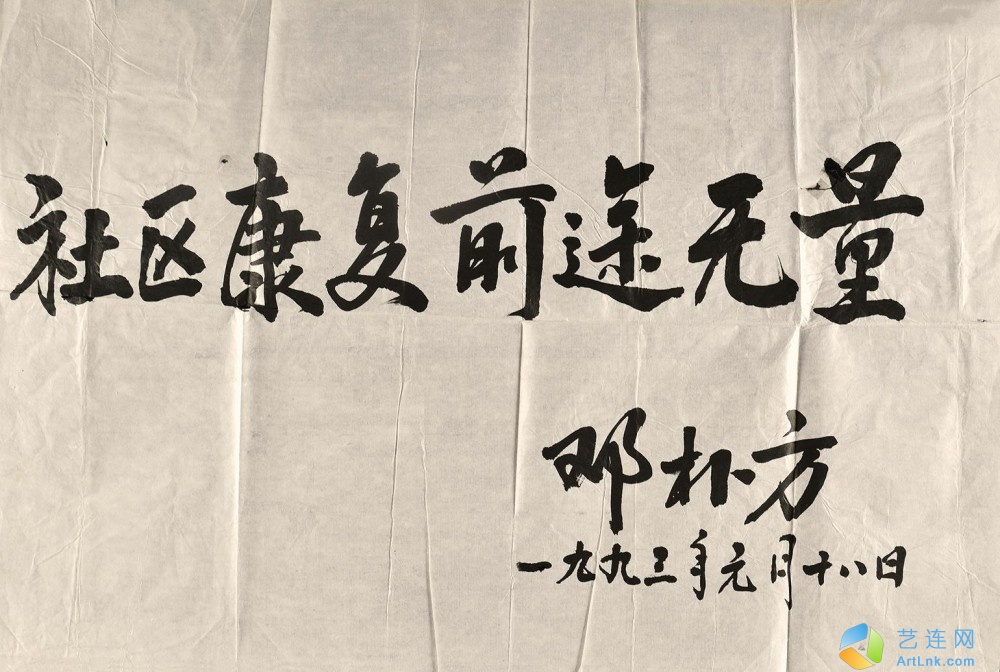 社区康复前途无量
邓朴方
一九九三年元月十八日
艺连网
ArtLnk.com